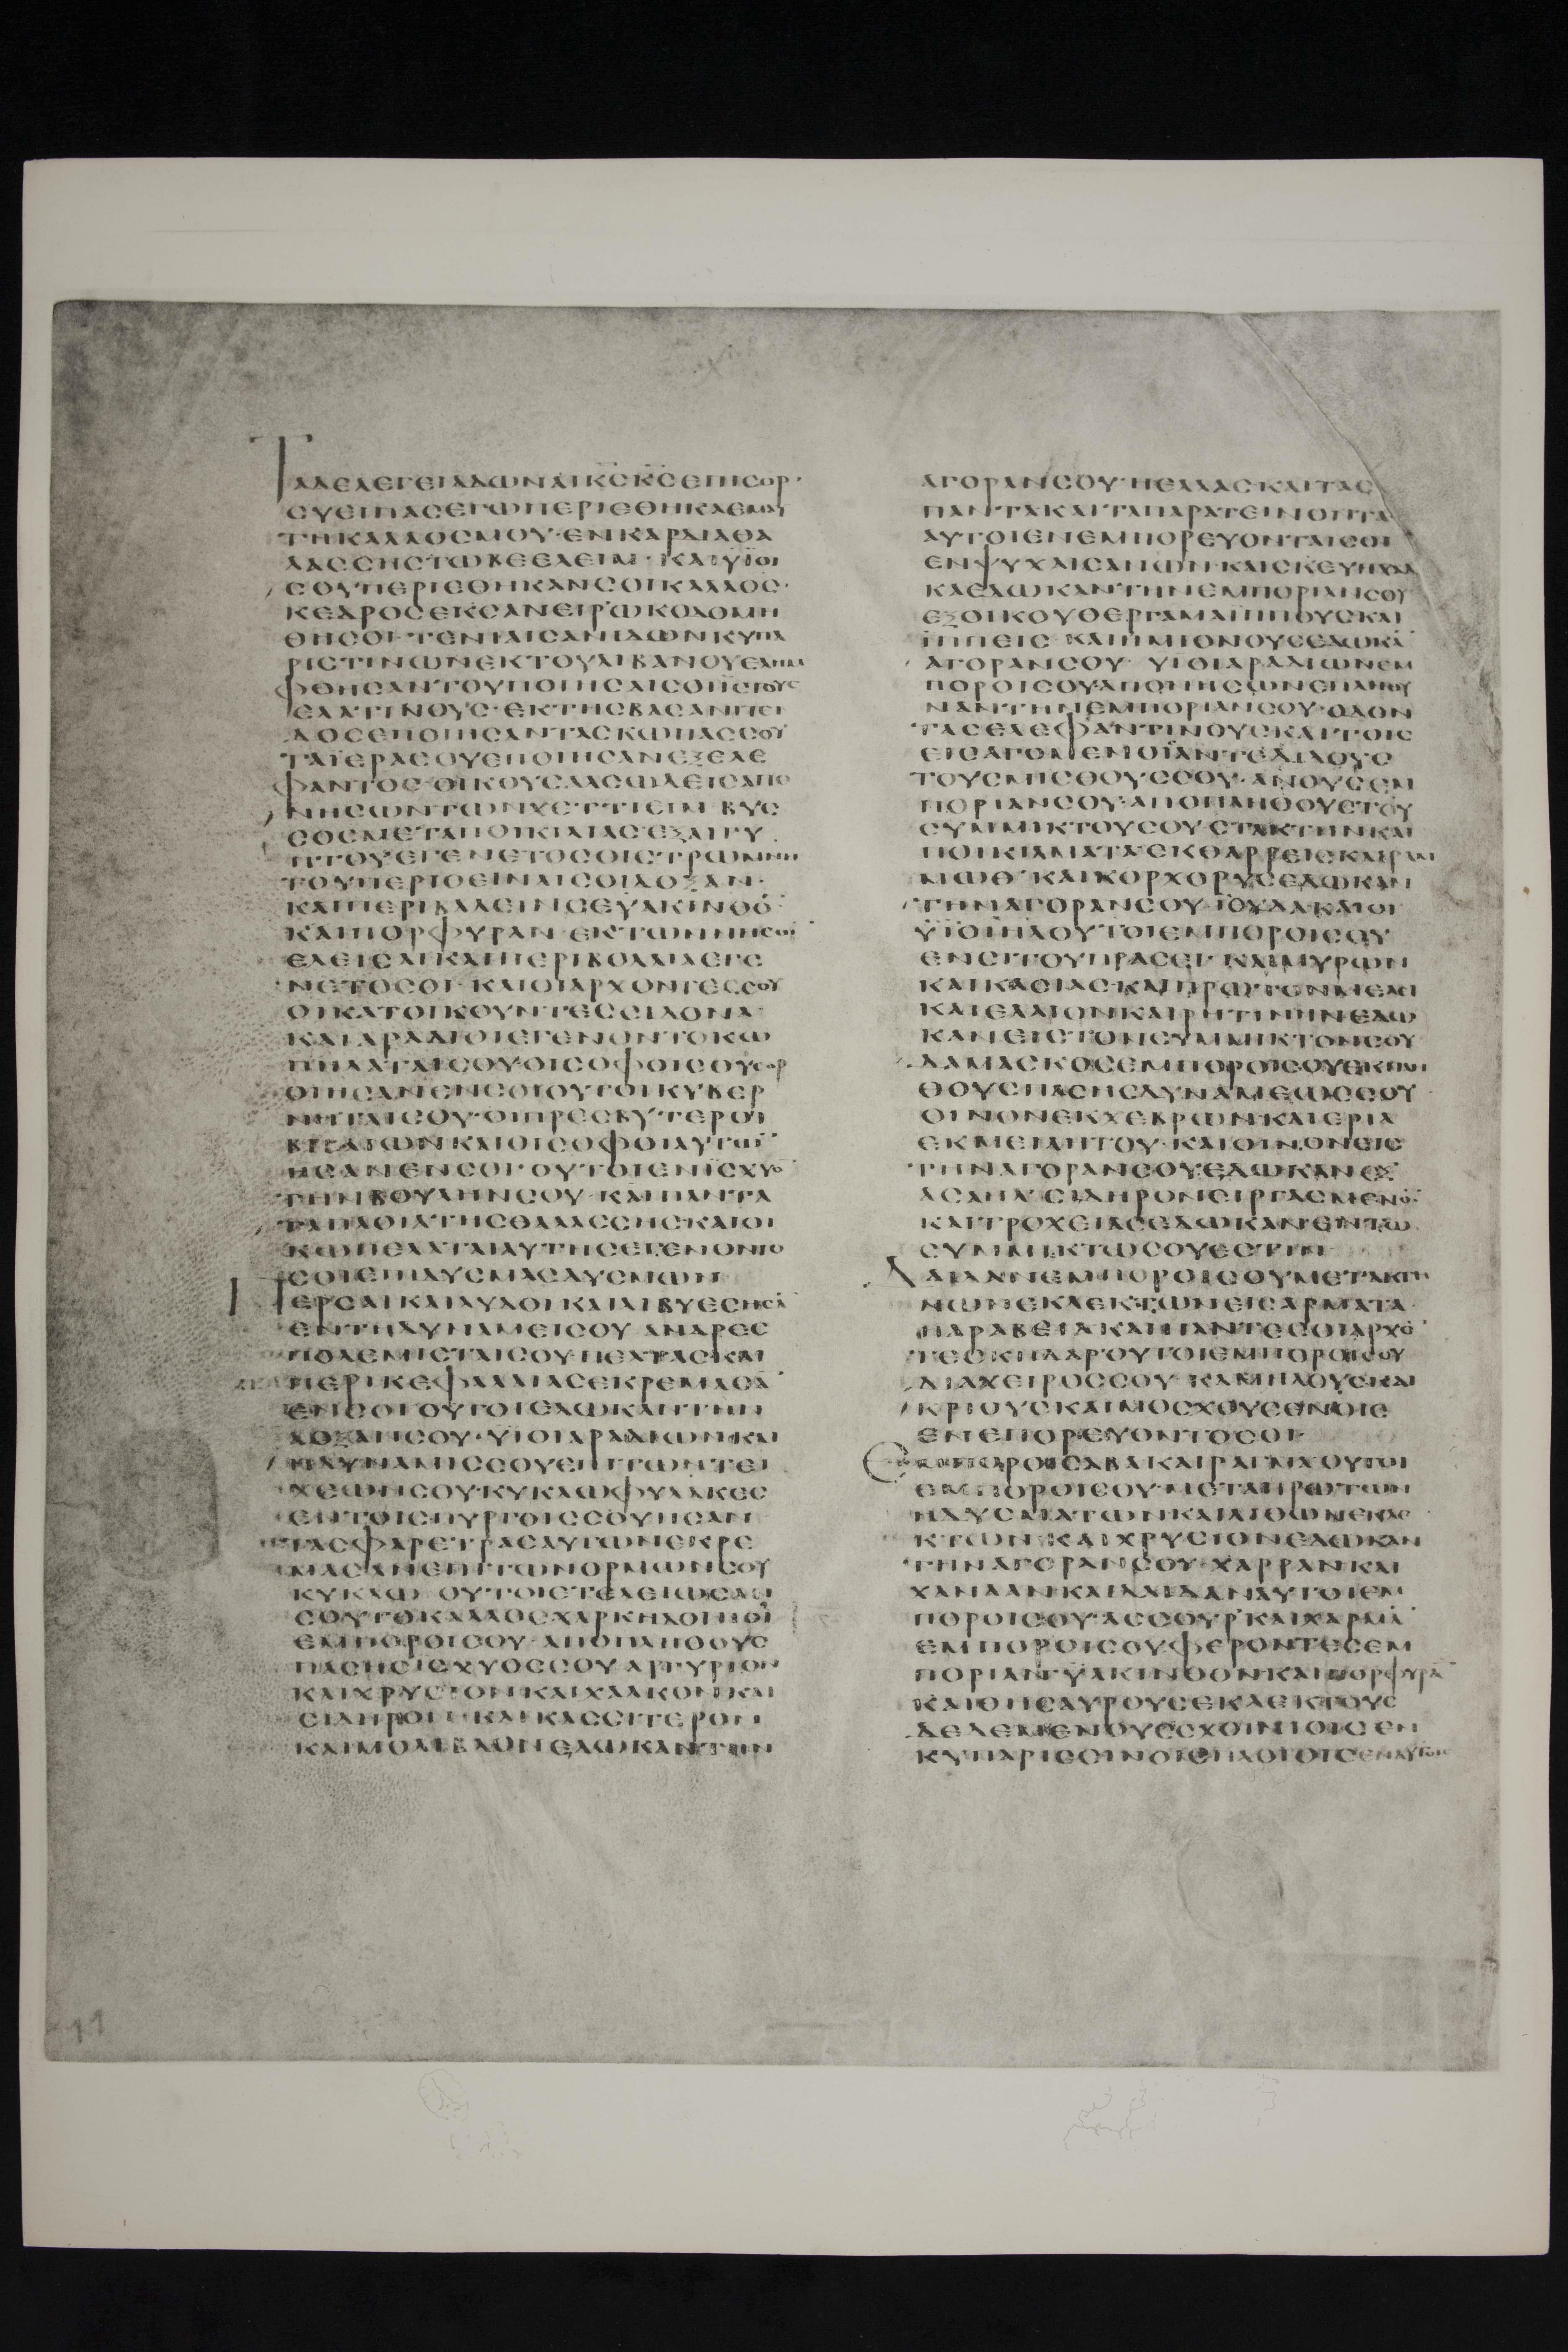 ΤΑΔΕΛΕΓΕΙΑΔΩΝΑΙΚCΚCΕΠΙCΟΡ·
CΥΕΙΠΑCΕΓΩΠΕΡΙΕΘΗΚΑΕΜΑΥ
ΤΗΚΑΛΛΟCΜΟΥ·ΕΝΚΑΡΔΙΑΘΑ
ΛΑCCΗCΤΩΒΕΕΛΕΙΜ·ΚΑΙΫΙΟΙ
CΟΥΠΕΡΙΕΘΗΚΑΝCΟΙΚΑΛΛΟC·
ΚΕΔΡΟCΕΚCΑΝΕΙΡΩΚΟΔΟΜΗ
ΘΗCΟΙ·ΤΕΝΙΑΙCΑΝΙΔΩΝΚΥΠΑ
ΡΙCΤΙΝΩΝΕΚΤΟΥΛΙΒΑΝΟΥΕΛΗΜ
ΦΘΗCΑΝΤΟΥΠΟΙΗCΑΙCΟΙΪCΤΟΥC
ΕΛΑΤΙΝΟΥC·ΕΚΤΗCΒΑCΑΝΙΤΙ
ΔΟCΕΠΟΙΗCΑΝΤΑCΚΩΠΑCCΟΥ
ΤΑΪΕΡΑCΟΥΕΠΟΙΗCΑΝΕΞΕΛΕ
ΦΑΝΤΟC·ΟΙΚΟΥCΔΑCΩΔΕΙCΑΠΟ
ΝΗCΩΝΤΩΝΧΕΤΤΙΕΙΜ·ΒΥC
CΟCΜΕΤΑΠΟΙΚΙΛΙΑCΕΞΑΙΓΥ
ΠΤΟΥΕΓΕΝΕΤΟCΟΙCΤΡΩΜΝΗ
ΤΟΥΠΕΡΙΘΕΙΝΑΙCΟΙΔΟΞΑΝ·
ΚΑΙΠΕΡΙΒΑΛΕΙΝCΕΥΑΚΙΝΘΟ̄
ΚΑΙΠΟΡΦΥΡΑΝ·ΕΚΤΩΝΝΗCΩ̄
ΕΛΕΙCΑΙΚΑΙΠΕΡΙΒΟΛΑΙΑΕΓΕ
ΝΕΤΟCΟΙ·ΚΑΙΟΙΑΡΧΟΝΤΕCCΟΥ
ΟΙΚΑΤΟΙΚΟΥΝΤΕCCΙΔΩΝΑ
ΚΑΙΑΡΑΔΙΟΙΕΓΕΝΟΝΤΟΚΩ
ΠΗΛΑΤΑΙCΟΥΟΙCΟΦΟΙCΟΥCΟΡ
ΟΙΗCΑΝΕΝCΟΙΟΥΤΟΙΚΥΒΕΡ
ΝΗΤΑΙCΟΥ·ΟΙΠΡΕCΒΥΤΕΡΟΙ
ΒΥΒΛΙΩΝΚΑΙΟΙCΟΦΟΙΑΥΤΩ̄
ΗCΑΝΕΝCΟΙ·ΟΥΤΟΙΕΝΙCΧΥΟ̄
ΤΗΝΒΟΥΛΗΝCΟΥ·ΚΑΙΠΑΝΤΑ
ΤΑΠΛΟΙΑΤΗCΘΑΛΑCCΗC·ΚΑΙΟΙ
ΚΩΠΕΛΑΤΑΙΑΥΤΗCΕΓΕΝΟΝΤΟ
CΟΙΕΠΙΔΥCΜΑCΔΥCΜΩΝ
ΠΕΡCΑΙΚΑΙΛΥΔΟΙΚΑΙΛΙΒΥΕCΗCᾹ
ΕΝΤΗΔΥΝΑΜΕΙCΟΥ·ΑΝΔΡΕC
ΠΟΛΕΜΙCΤΑΙCΟΥ·ΠΕΛΤΑCΚΑΙ
ΠΕΡΙΚΕΦΑΛΑΙΑCΕΚΡΕΜΑCᾹ
ΕΝCΟΙ·ΟΥΤΟΙΕΔΩΚΑΝΤΗΝ
ΔΟΞΑΝCΟΥ·ΥΙΟΙΑΡΑΔΙΩΝΚΑΙ
ΗΔΥΝΑΜΙCCΟΥΕΠΙΤΩΝΤΕΙ
ΧΕΩΝCΟΥ·ΚΥΚΛΩΦΥΛΑΚΕC
ΕΝΤΟΙCΠΥΡΓΟΙCCΟΥΗCΑΝ
ΤΑCΦΑΡΕΤΡΑCΑΥΤΩΝΕΚΡΕ
ΜΑCΑΝΕΠΙΤΩΝΟΡΜΩΝCΟΥ
ΚΥΚΛΩ·ΟΥΤΟΙΕΤΕΛΕΙΩCΑΝ
CΟΥΤΟΚΑΛΛΟCΧΑΡΚΗΔΟΝΙΟΙ
ΕΜΠΟΡΟΙCΟΥ·ΑΠΟΠΛΗΘΟΥC
ΠΑCΗCΙCΧΥΟCCΟΥ·ΑΡΓΥΡΙΟΝ
ΚΑΙΧΡΥCΙΟΝΚΑΙΧΑΛΚΟΝΚΑΙ
CΙΔΗΡΟΝ·ΚΑΙΚΑCCΙΤΕΡΟΝ
ΚΑΙΜΟΛΙΒΔΟΝΕΔΩΚΑΝΤΗΝ
ΑΓΟΡΑΝCΟΥ·ΗΕΛΛΑCΚΑΙΤΑC
ΠΑΝΤΑΚΑΙΤΑΠΑΡΑΤΕΙΝΟΝΤΑ
ΑΥΤΟΙΕΝΕΜΠΟΡΕΥΟΝΤΑΙCΟΙ
ΕΝΨΥΧΑΙCΑΝΩΝ·ΚΑΙCΚΕΥΗΧΑΛ
ΚΑΕΔΩΚΑΝΤΗΝΕΜΠΟΡΙΑΝCΟΥ
ΕΞΟΙΚΟΥΘΕΡΓΑΜΑΪΠΠΟΥCΚΑΙ
ΪΠΠΕΙC·ΚΑΙΗΜΙΟΝΟΥCΕΔΩΚᾹ
ΑΓΟΡΑΝCΟΥ·ΥΙΟΙΑΡΑΔΙΩΝΕΜ
ΠΟΡΟΙCΟΥ·ΑΠΟΝΗCΩΝΕΠΛΗΘΥ
ΝΑΝΤΗΝΕΜΠΟΡΙΑΝCΟΥ·ΟΔΟΝ
ΤΑCΕΛΕΦΑΝΤΙΝΟΥCΚΑΙΤΟΙC
ΕΙCΑΓΟΜΕΝΟΪΑΝΤΕΔΙΔΟΥC
ΤΟΥCΜΙCΘΟΥCCΟΥ·ΑΝΟΥCΕΜ
ΠΟΡΙΑΝCΟΥ·ΑΠΟΠΛΗΘΟΥCΤΟΥ
CΥΜΜΙΚΤΟΥCΟΥ·CΤΑΚΤΗΝΚΑΙ
ΠΟΙΚΙΛΜΑΤΑΕΚΘΑΡΡΕΙCΚΑΙΡΑΜ
ΜΩΘ·ΚΑΙΚΟΡΧΟΡΥCΕΔΩΚΑΝ
ΤΗΝΑΓΟΡΑΝCΟΥ·ΪΟΥΔΑΚΑΙΟΙ
ΫΙΟΙΗΛΟΥΤΟΙΕΜΠΟΡΟΙCΟΥ
ΕΝCΙΤΟΥΠΡΑCΕΙ·ΚΑΙΜΥΡΩΝ
ΚΑΙΚΑCΙΑC·ΚΑΙΠΡΩΤΟΝΜΕΛΙ
ΚΑΙΕΛΑΙΟΝΚΑΙΡΗΤΙΝΗΝΕΔΩ
ΚΑΝΕΙCΤΟΝCΥΜΜΙΚΤΟΝCΟΥ
ΔΑΜΑCΚΟCΕΜΠΟΡΟΙCΟΥΕΚΠΛΗ
ΘΟΥCΠΑCΗCΔΥΝΑΜΕΩCCΟΥ
ΟΙΝΟΝΕΚΧΕΒΡΩΝ·ΚΑΙΕΡΙΑ
ΕΚΜΕΙΛΗΤΟΥ·ΚΑΙΟΙΝΟΝΕΙC
ΤΗΝΑΓΟΡΑΝCΟΥΕΔΩΚΑΝΕΞ
ΑCΑΗΛ·CΙΔΗΡΟΝΕΙΡΓΑCΜΕΝΟ̄
ΚΑΙΤΡΟΧΕΙΑCΕΔΩΚΑΝΕΝΤΩ
CΥΜΜΙΚΤΩCΟΥΕCΤΙΝ
ΔΑΙΔΑΝΕΜΠΟΡΟΙCΟΥΜΕΤΑΚΤΗ
ΝΩΝΕΚΛΕΚΤΩΝΕΙCΑΡΜΑΤΑ·
ΑΡΑΒΕΙΑΚΑΙΠΑΝΤΕCΟΙΑΡΧΟ̄
ΤΕCΚΗΔΑΡΟΥΤΟΙΕΜΠΟΡΟΙCΟΥ
ΔΙΑΧΕΙΡΟCCΟΥ·ΚΑΜΗΛΟΥCΚΑΙ
ΚΡΙΟΥCΚΑΙΜΟCΧΟΥCΕΝΟΙC
ΕΝΕΠΟΡΕΥΟΝΤΟCΟΙ·
ΕΜΠΟΡΟΙCΑΒΑΚΑΙΡΑΓΜΑΟΥΤΟΙ
ΕΜΠΟΡΟΙCΟΥ·ΜΕΤΑΠΡΩΤΩΝ
ΗΔΥCΜΑΤΩΝΚΑΙΛΙΘΩΝΕΚΛΕ
ΚΤΩΝ·ΚΑΙΧΡΥCΙΟΝΕΔΩΚΑΝ
ΤΗΝΑΓΟΡΑΝCΟΥ·ΧΑΡΡΑΝΚΑΙ
ΧΑΝΑΑΝΚΑΙΔΑΙΔΑΝΑΥΤΟΙΕΜ
ΠΟΡΟΙCΟΥ·ΑCCΟΥΡΚΑΙΧΑΡΜᾹ
ΕΜΠΟΡΟΙCΟΥΦΕΡΟΝΤΕCΕΜ
ΠΟΡΙΑΝ·ΫΑΚΙΝΘΟΝ·ΚΑΙΠΟΡΦΥΡᾹ
ΚΑΙΘΗCΑΥΡΟΥCΕΚΛΕΚΤΟΥC
ΔΕΔΕΜΕΝΟΥCCΧΟΙΝΙΟΙCΕΝ
ΚΥΠΑΡΙCCΙΝΟΙCΠΛΟΙΟΙCΕΝΑΥΤΟΙC
11